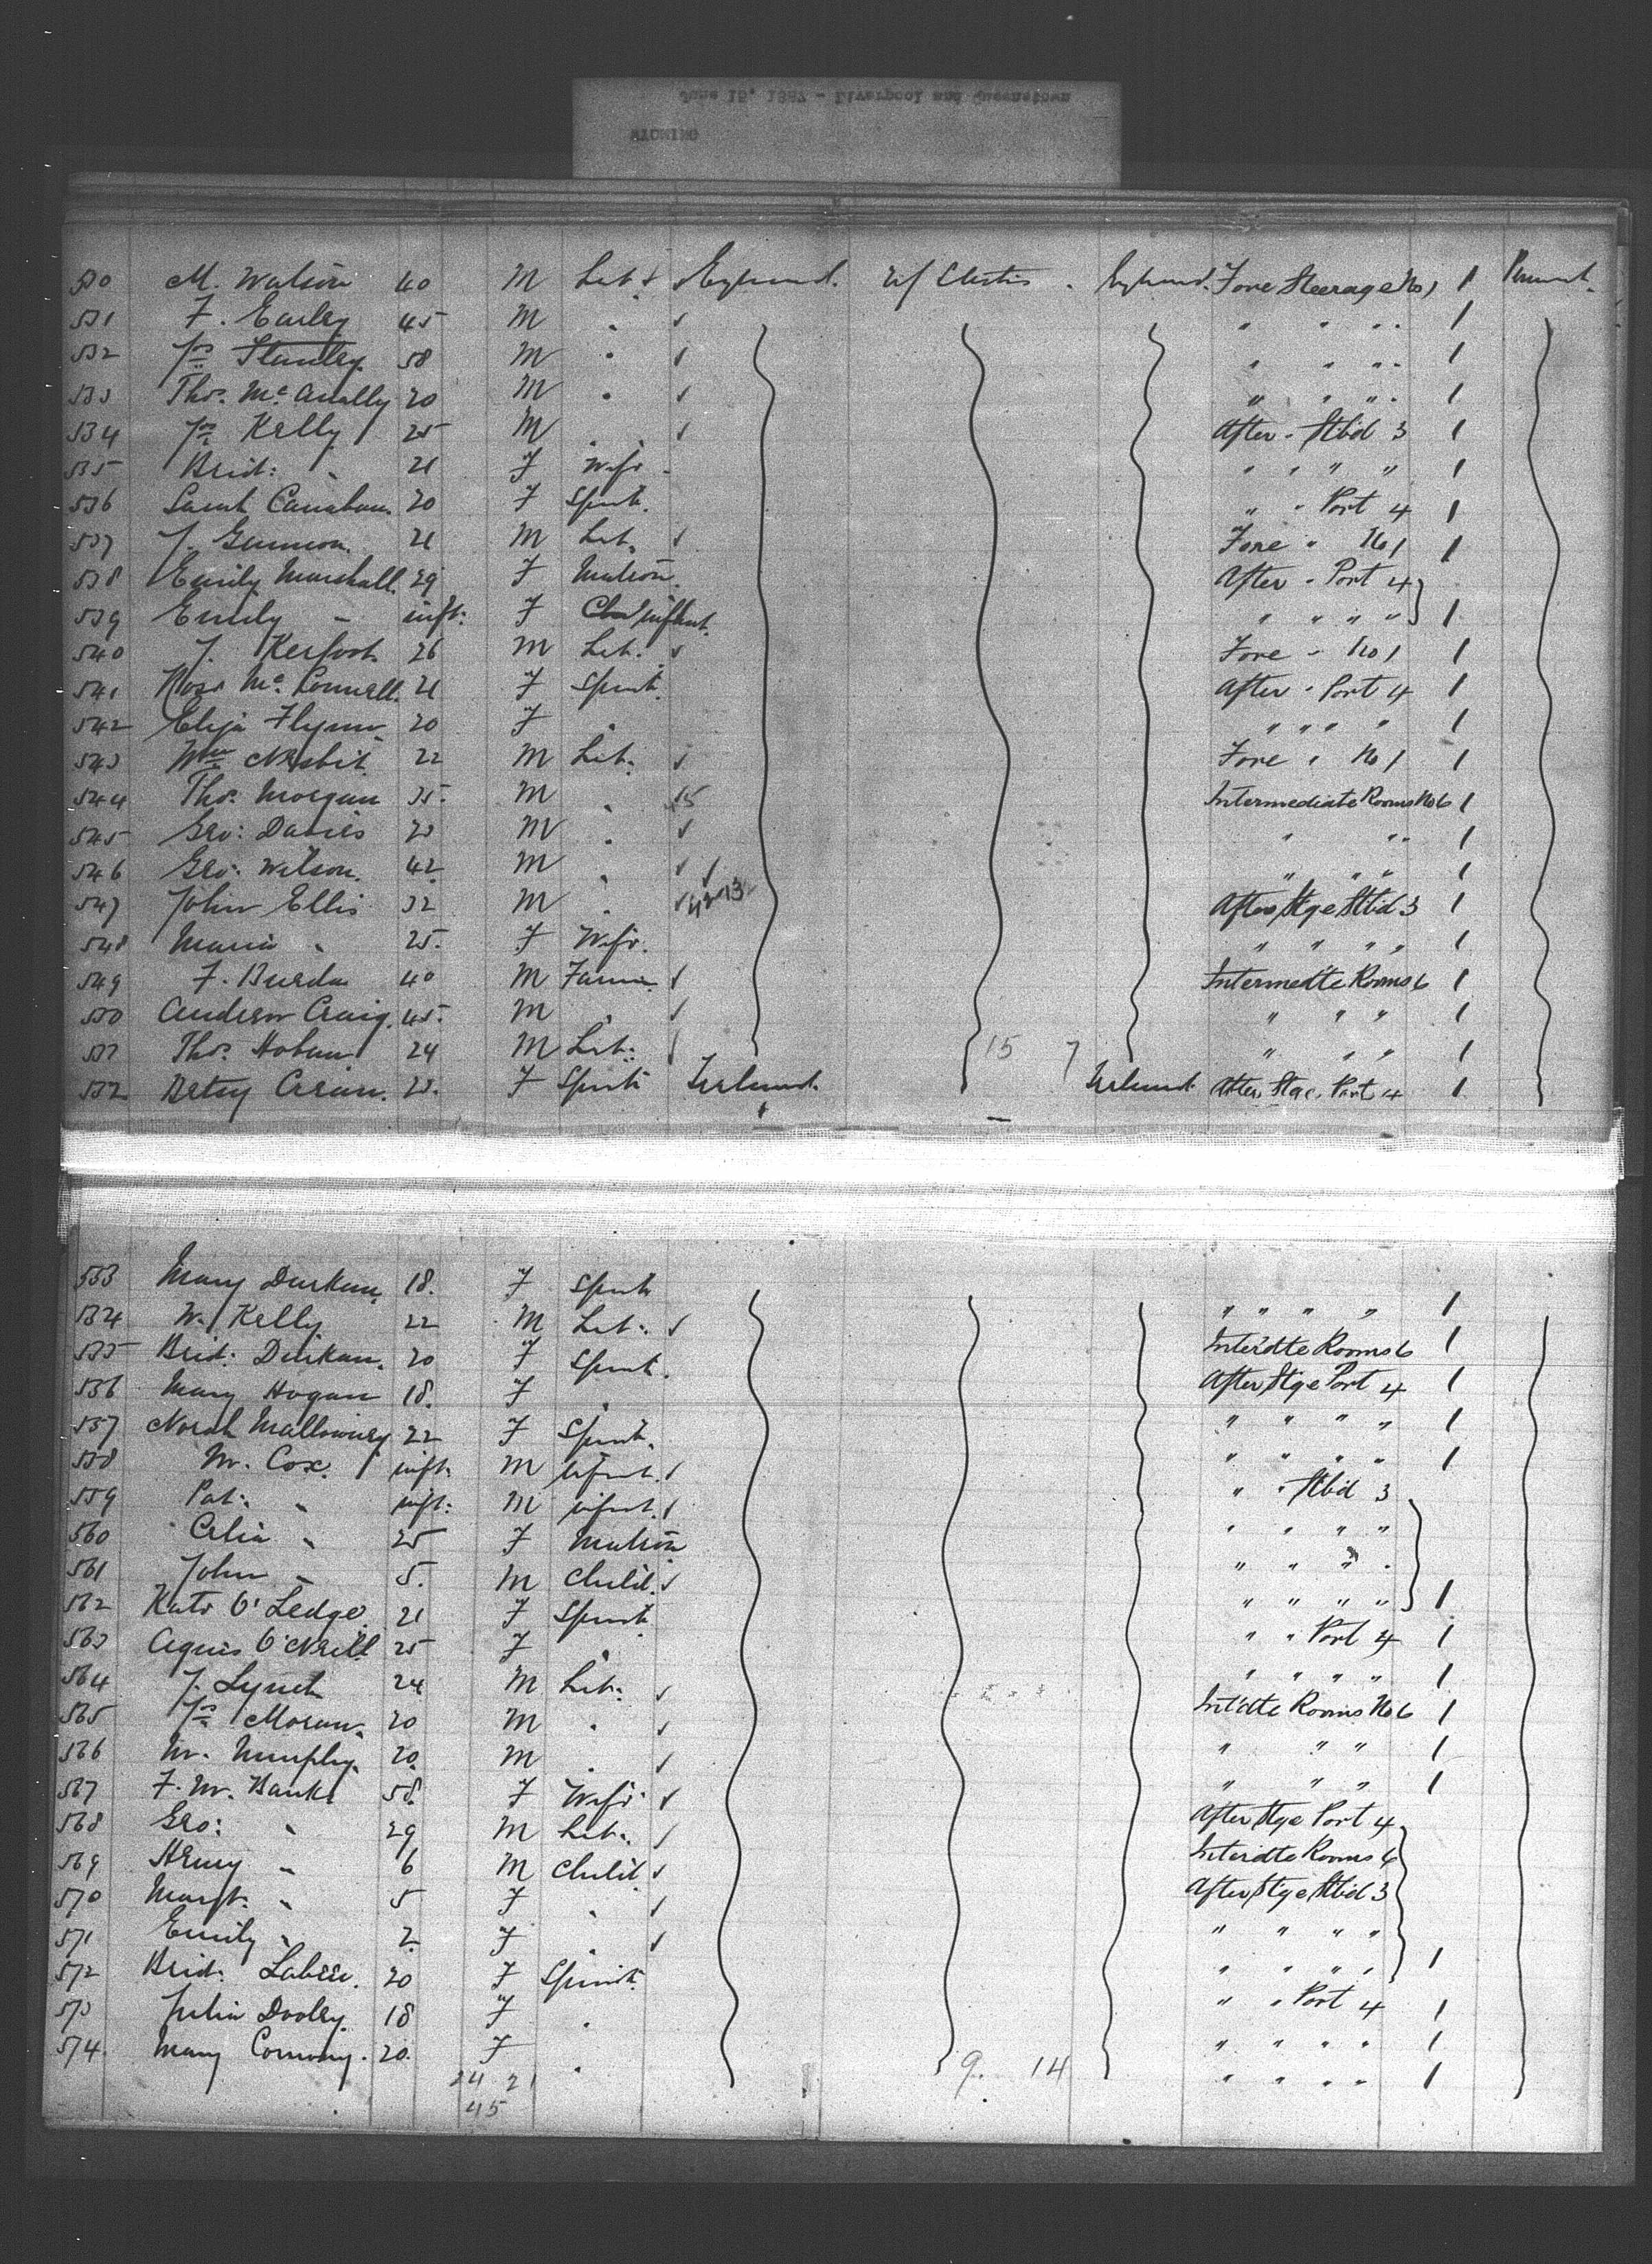 June 15, 1887 - Liverpool and Queenstown
WYOMING
530 M. Watson 40 M Lab. England. U/ States England. Fore Steerage No 1 1 Permnt.
531 F. Earley 45 M " " " " 1
532 Jas Stanley 58 M " " " " 1
533 Thos. McAnally 20 M " " " " 1
534 Jas Kelly 25 M " After " Stbd 3 1
535 Brid: " 21 F Wife " " " " 1
536 Sarah Canaban 20 F Spinst. " " Port 4 1
537 J. Gannon 21 M Lab. Fore " No 1 1
538 Emily Marshall 29 F Matron After " Port 4
539 Emily " inft: F infant. " " " " 1
540 J. Kerfoot 26 M Lab. Fore " No 1 1
541 Rose McConnell 21 F Spinst. After " Port 4 1
542 Eliza Flynn 20 F " " " " " 1
543 Wm Nesbit 22 M Lab. Fore " No 1 1
544 Thos. Morgan 35 M " 15 Intermediate Rooms No 6 1
545 Geo: Davies 23 M " " " " 1
546 Geo: Wilson 42 M " " " " 1
547 John Ellis 32 M " After Stge Stbd 3 1
548 Maria " 25 F Wife " " " " 1
549 F. Burda 40 M Farmer Intermedte Rooms 6 1
550 Andrew Craig 45 M " " " " 1
551 Thos. Hoban 24 M Lab: 15 7 " " " 1
552 Betsy Crean 23 F Spinst Ireland. Ireland. After Stge. Port 4 1
553 Mary Durkan 18 F Spinst " " " " 1
554 W. Kelly 22 M Lab. Interdte Rooms 6 1
555 Brid: Durkan 20 F Spinst. After Stge Port 4 1
556 Mary Hogan 18 F " " " " " 1
557 Norah 22 F Spinst. " " " " 1
558 M. Cox inft. M infnt. " " Stbd 3
559 Pat: " inft: M infnt. " " " "
560 Celia " 25 F Matron " " " "
561 John " 5 M Child " " " " 1
562 Kate O'Ledge 21 F Spinst " " Port 4 1
563 Agnes O'Neill 25 F " " " " " 1
564 J. Lynch 24 M Lab: Intdte Rooms No 6 1
565 Jas Moran 20 M " " " " 1
566 M. Murphy 20 M " " " " 1
567 F. M. Banks 58 F Wife After Stge Port 4
568 Geo: " 29 M Lab. Interdte Rooms 6
569 Henry " 6 M Child After Stge Stbd 3
570 Margt. " 5 F " " " " "
571 Emily " 2 F " " " " " 1
572 Brid: 20 F Spinst. " " Port 4 1
573 Julia Dooley 18 F " " " " " 1
574 Mary Conway 20 F " 9. 14 " " " " 1
24 21
45